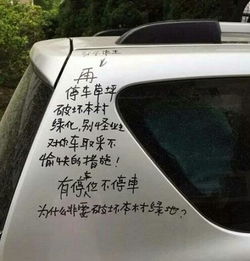 再
停车草坪
破坏本村
绿化，别怪业主
对你车取采不
愉快的措施！
有停位不停車
为什么非要破坏本村绿地？